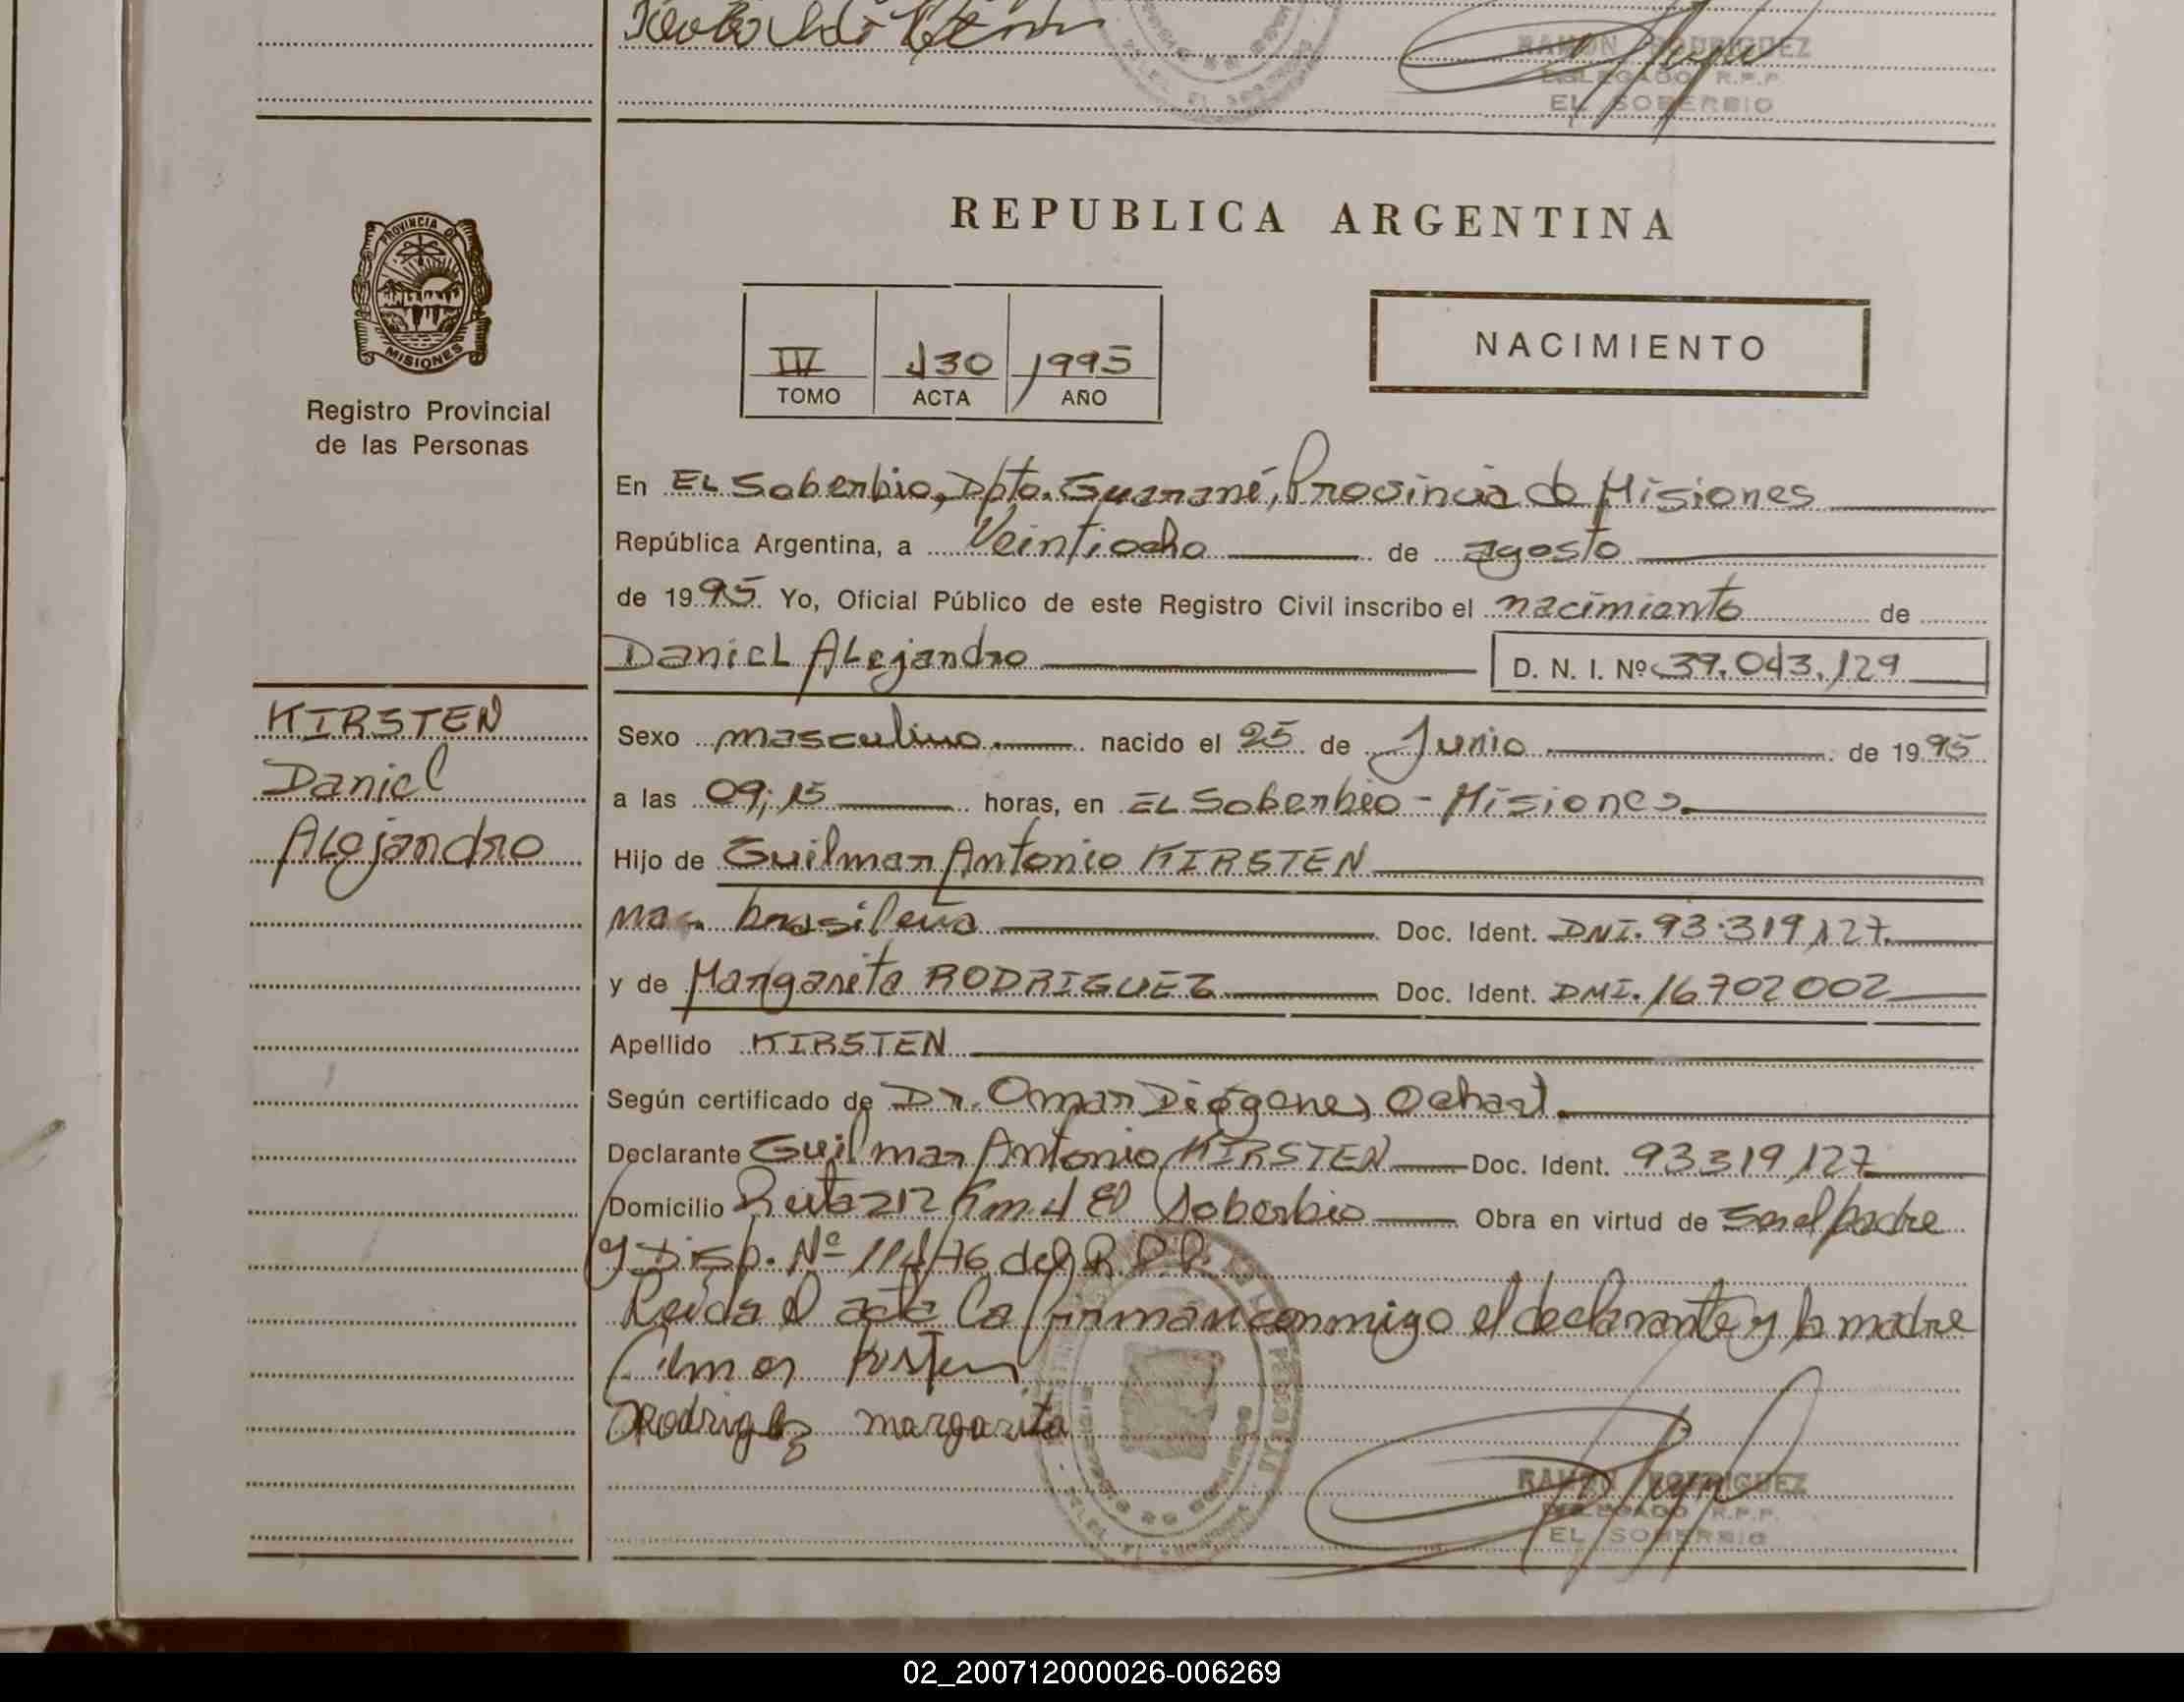 RAMON RODRIGUEZ
DELEGADO R.P.P.
EL SOBERBIO
PROVINCIA DE
MISIONES
Registro Provincial
de las Personas
REPUBLICA ARGENTINA
IV 430 1995
TOMO ACTA AÑO
NACIMIENTO
En EL Soberbio, Dpto. Guaraní, Provincia de Misiones
República Argentina, a Veintiocho de agosto
de 1995 Yo, Oficial Público de este Registro Civil inscribo el nacimiento de
Daniel Alejandro D. N. I. Nº 39.043.129
KIRSTEN
Daniel
Alejandro
Sexo masculino. nacido el 25 de Junio de 1995
a las 09;15 horas, en EL Soberbio - Misiones.
Hijo de Guilmar Antonio KIRSTEN
brasileña Doc. Ident. DNI. 93.319.127.
y de Margarita RODRIGUEZ Doc. Ident. DMI. 16702002
Apellido KIRSTEN
Según certificado de Dr. Omar Diógenes Ochart.
Declarante Guilmar Antonio KIRSTEN Doc. Ident. 93319127
Domicilio Ruta 212 Km. 4 El Soberbio Obra en virtud de Ser el padre
y Disp. Nº 114/76 del R.P.P.
Leida el acta la firman conmigo el declarante y la madre
Kirsten
Rodriguez margarita
RAMON RODRIGUEZ
DELEGADO R.P.P.
EL SOBERBIO
02_200712000026-006269